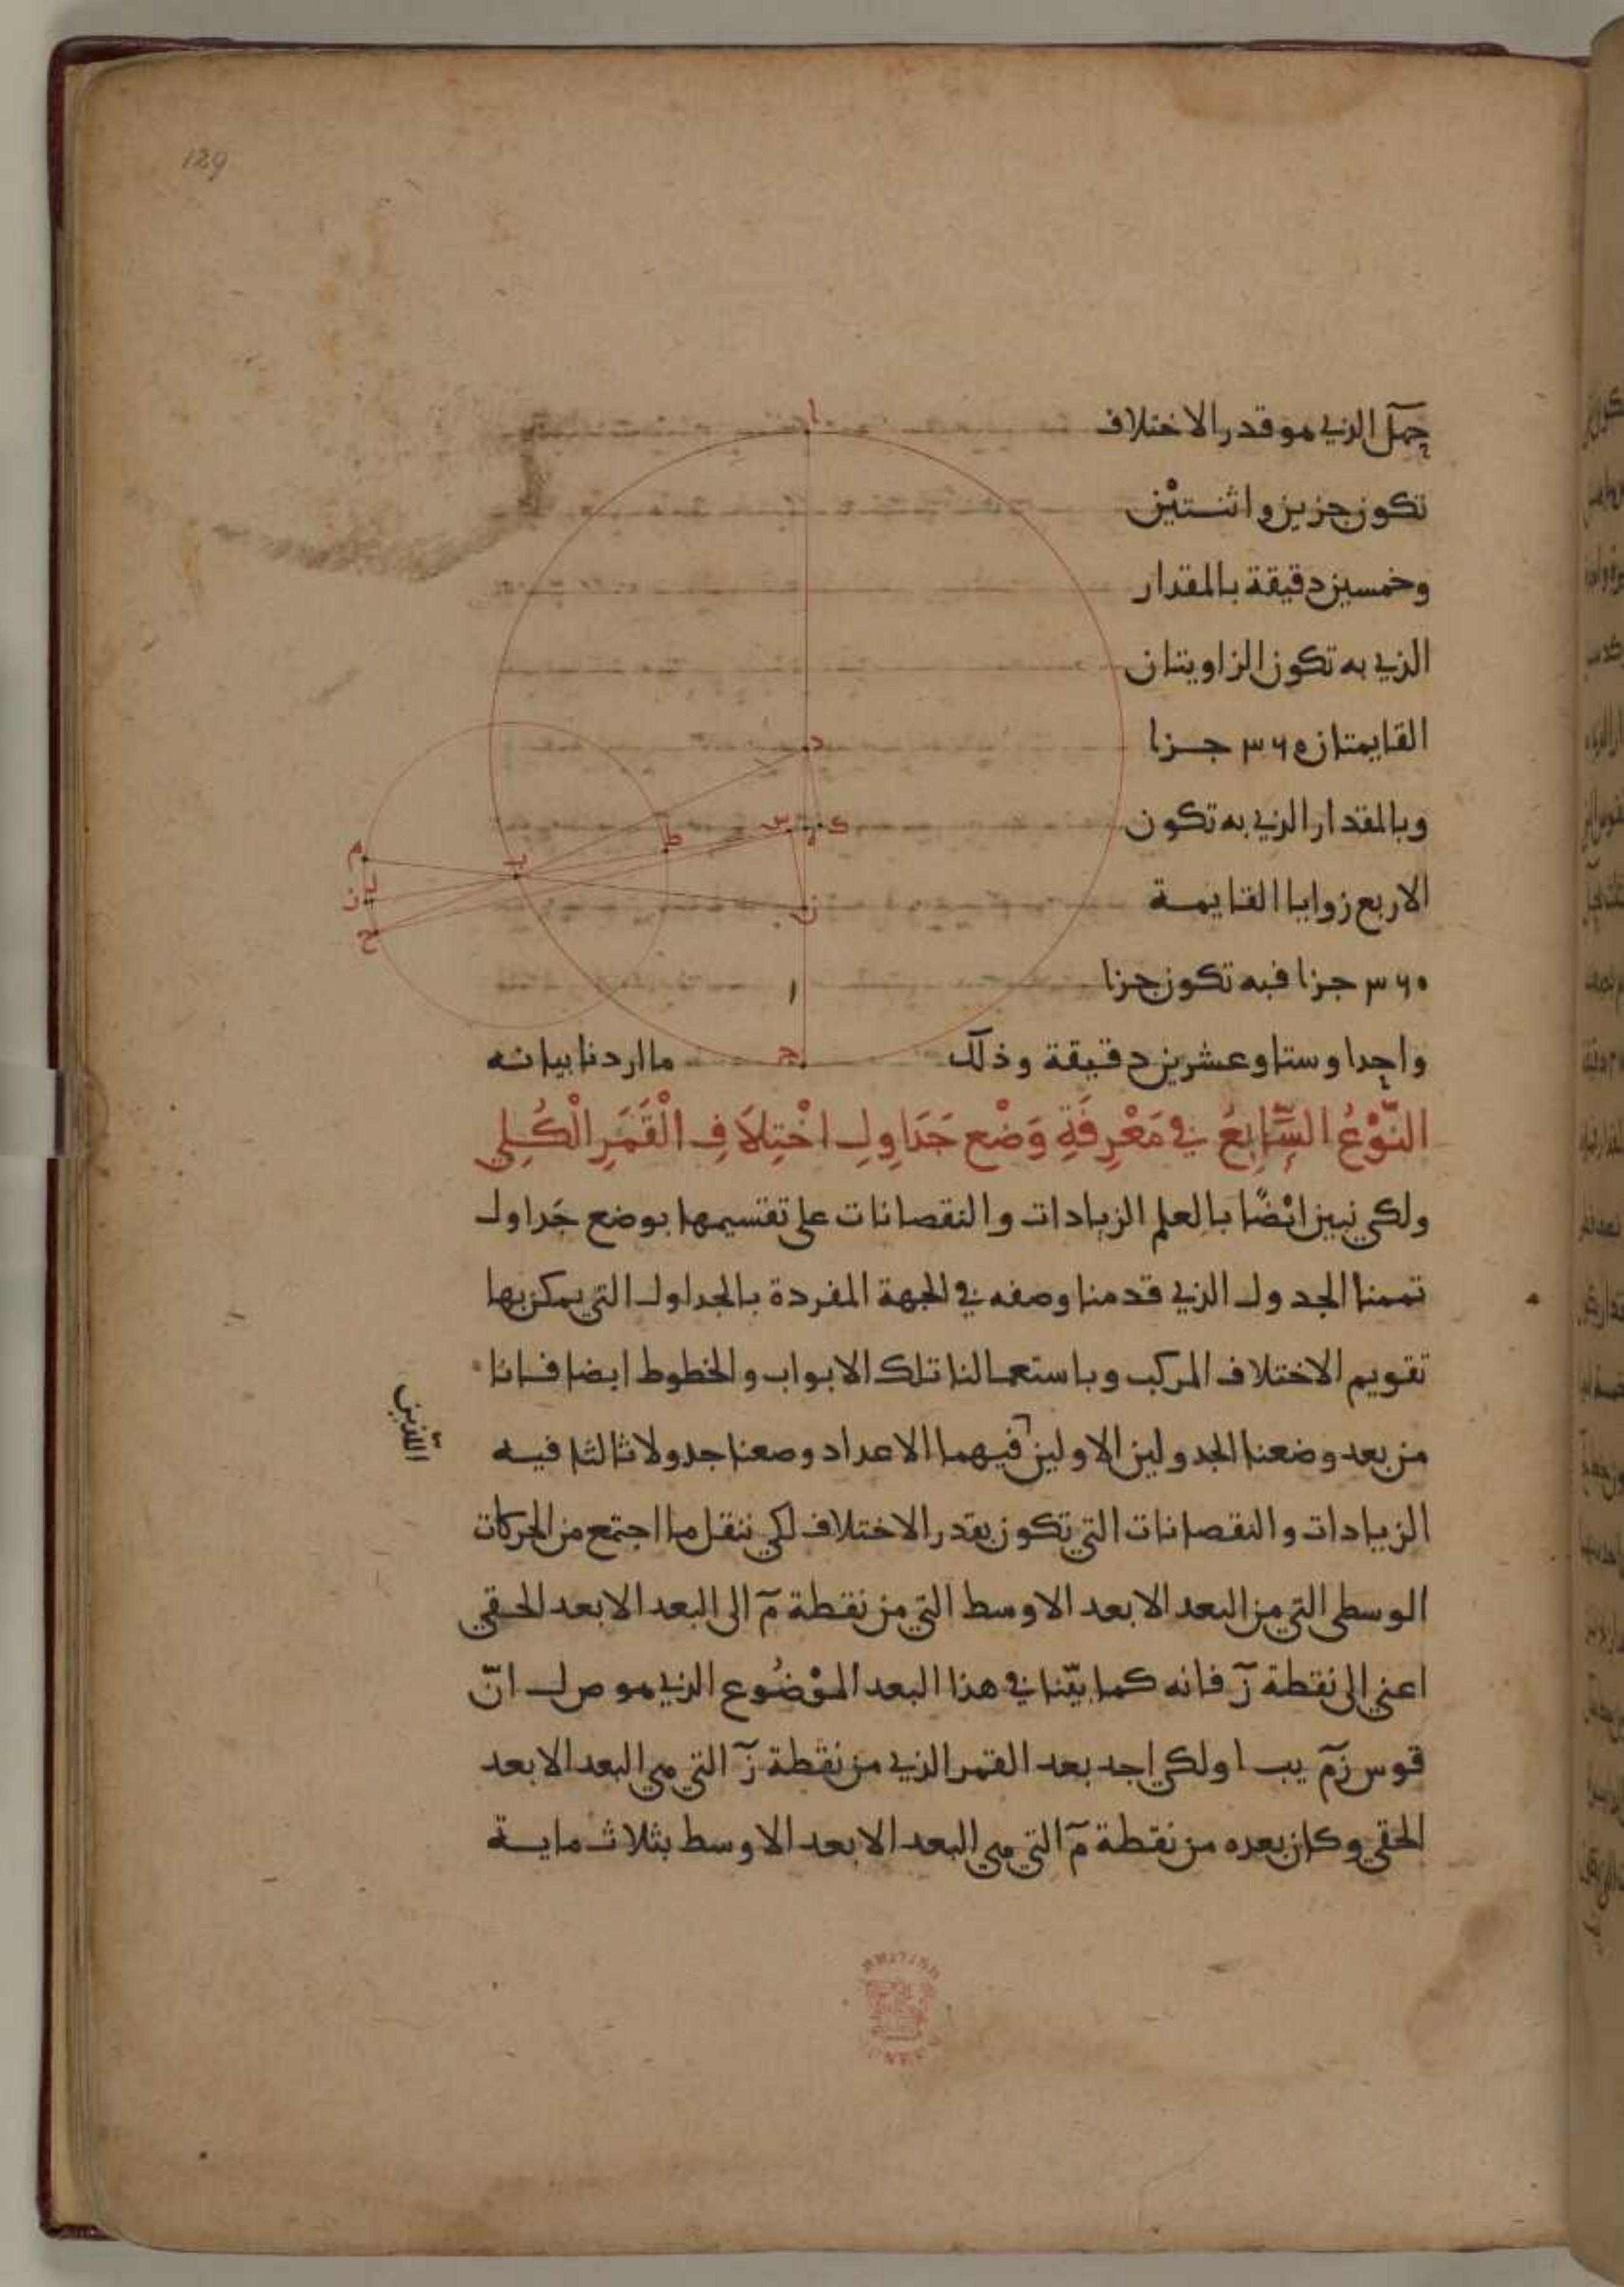 129
حمل الذي هو قدر الاختلاف
تكون جزين واثنتين
وخمسين دقيقة بالمقدار
الذي به تكون الزاويتان
القايمتان ٣٦٠ جزا
وبالمقدار الذي به تكون
الاربع زوايا القايمة
٣٦٠ جزا فبه تكون جزا
واحدا وستا وعشرين دقيقة وذلك ما اردنا بيانه
النَّوْعُ السَّابِعُ في مَعْرِفَةِ وَضْع جَدَاوِلِ اخْتِلَافِ الْقَمَرِ الْكُلِي
ولكي نبين ايْضًا بالعلم الزيادات والنقصانات على تقسيمها بوضع جَداول
تممنا الجدول الذي قدمنا وصفه في الجهة المفردة بالجداول التي يمكن بها
تقويم الاختلاف المركب وباستعمالنا تلك الابواب والخطوط ايضا فانا
من بعد وضعنا الجدولين الاولين فيهما الاعداد وضعنا جدولا ثالثا فيه
اللذين
الزيادات والنقصانات التي تكون بقدر الاختلاف لكي ننقل ما اجتمع من الحركات
الوسطى التي من البعد الابعد الاوسط التي من نقطة مَ الى البعد الابعد الحقي
اعني الى نقطة زَ فانه كما بيّنا في هذا البعد الموْضُوع الذي هو ص ل انّ
قوس زم يب ا ولكي اجد بعد القمر الذي من نقطة زَ التي هي البعد الابعد
الحقي وكان بعده من نقطة مَ التي هي البعد الابعد الاوسط بثلاث ماية
ا
د
س
ه
ك
ط
ب
م
ل
ن
ح
ن
ج
BRITISH